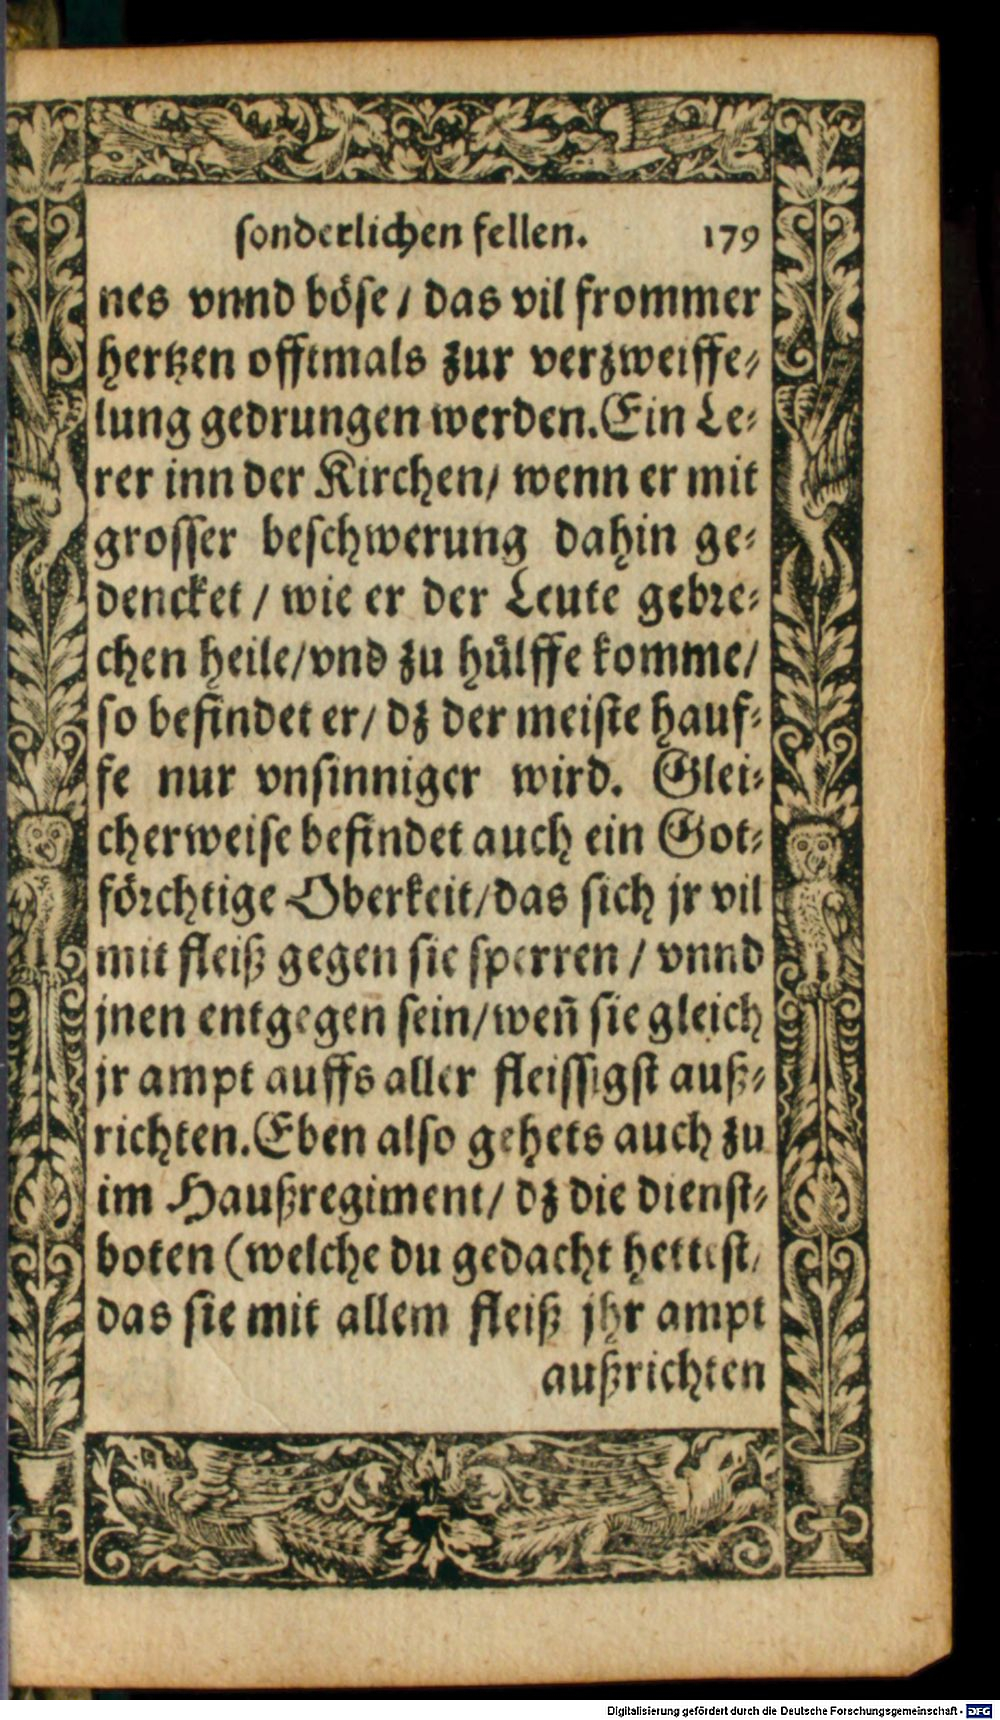 sonderlichen fellen. 179
nes vnnd böse / das vil frommer
hertzen offtmals zur verzweiffe⸗
lung gedrungen werden. Ein Le⸗
rer inn der Kirchen / wenn er mit
grosser beschwerung dahin ge⸗
dencket / wie er der Leute gebre⸗
chen heile / vnd zu hůlffe komme /
so befindet er / dz der meiste hauf⸗
fe nur vnsinniger wird. Glei⸗
cherweise befindet auch ein Got⸗
förchtige Oberkeit / das sich jr vil
mit fleiß gegen sie sperren / vnnd
jnen entgegen sein / weñ sie gleich
jr ampt auffs aller fleissigst auß⸗
richten. Eben also gehets auch zu
im Haußregiment / dz die dienst⸗
boten (welche du gedacht hettest /
das sie mit allem fleiß jhr ampt
außrichten
Digitalisierung gefördert durch die Deutsche Forschungsgemeinschaft - DFG